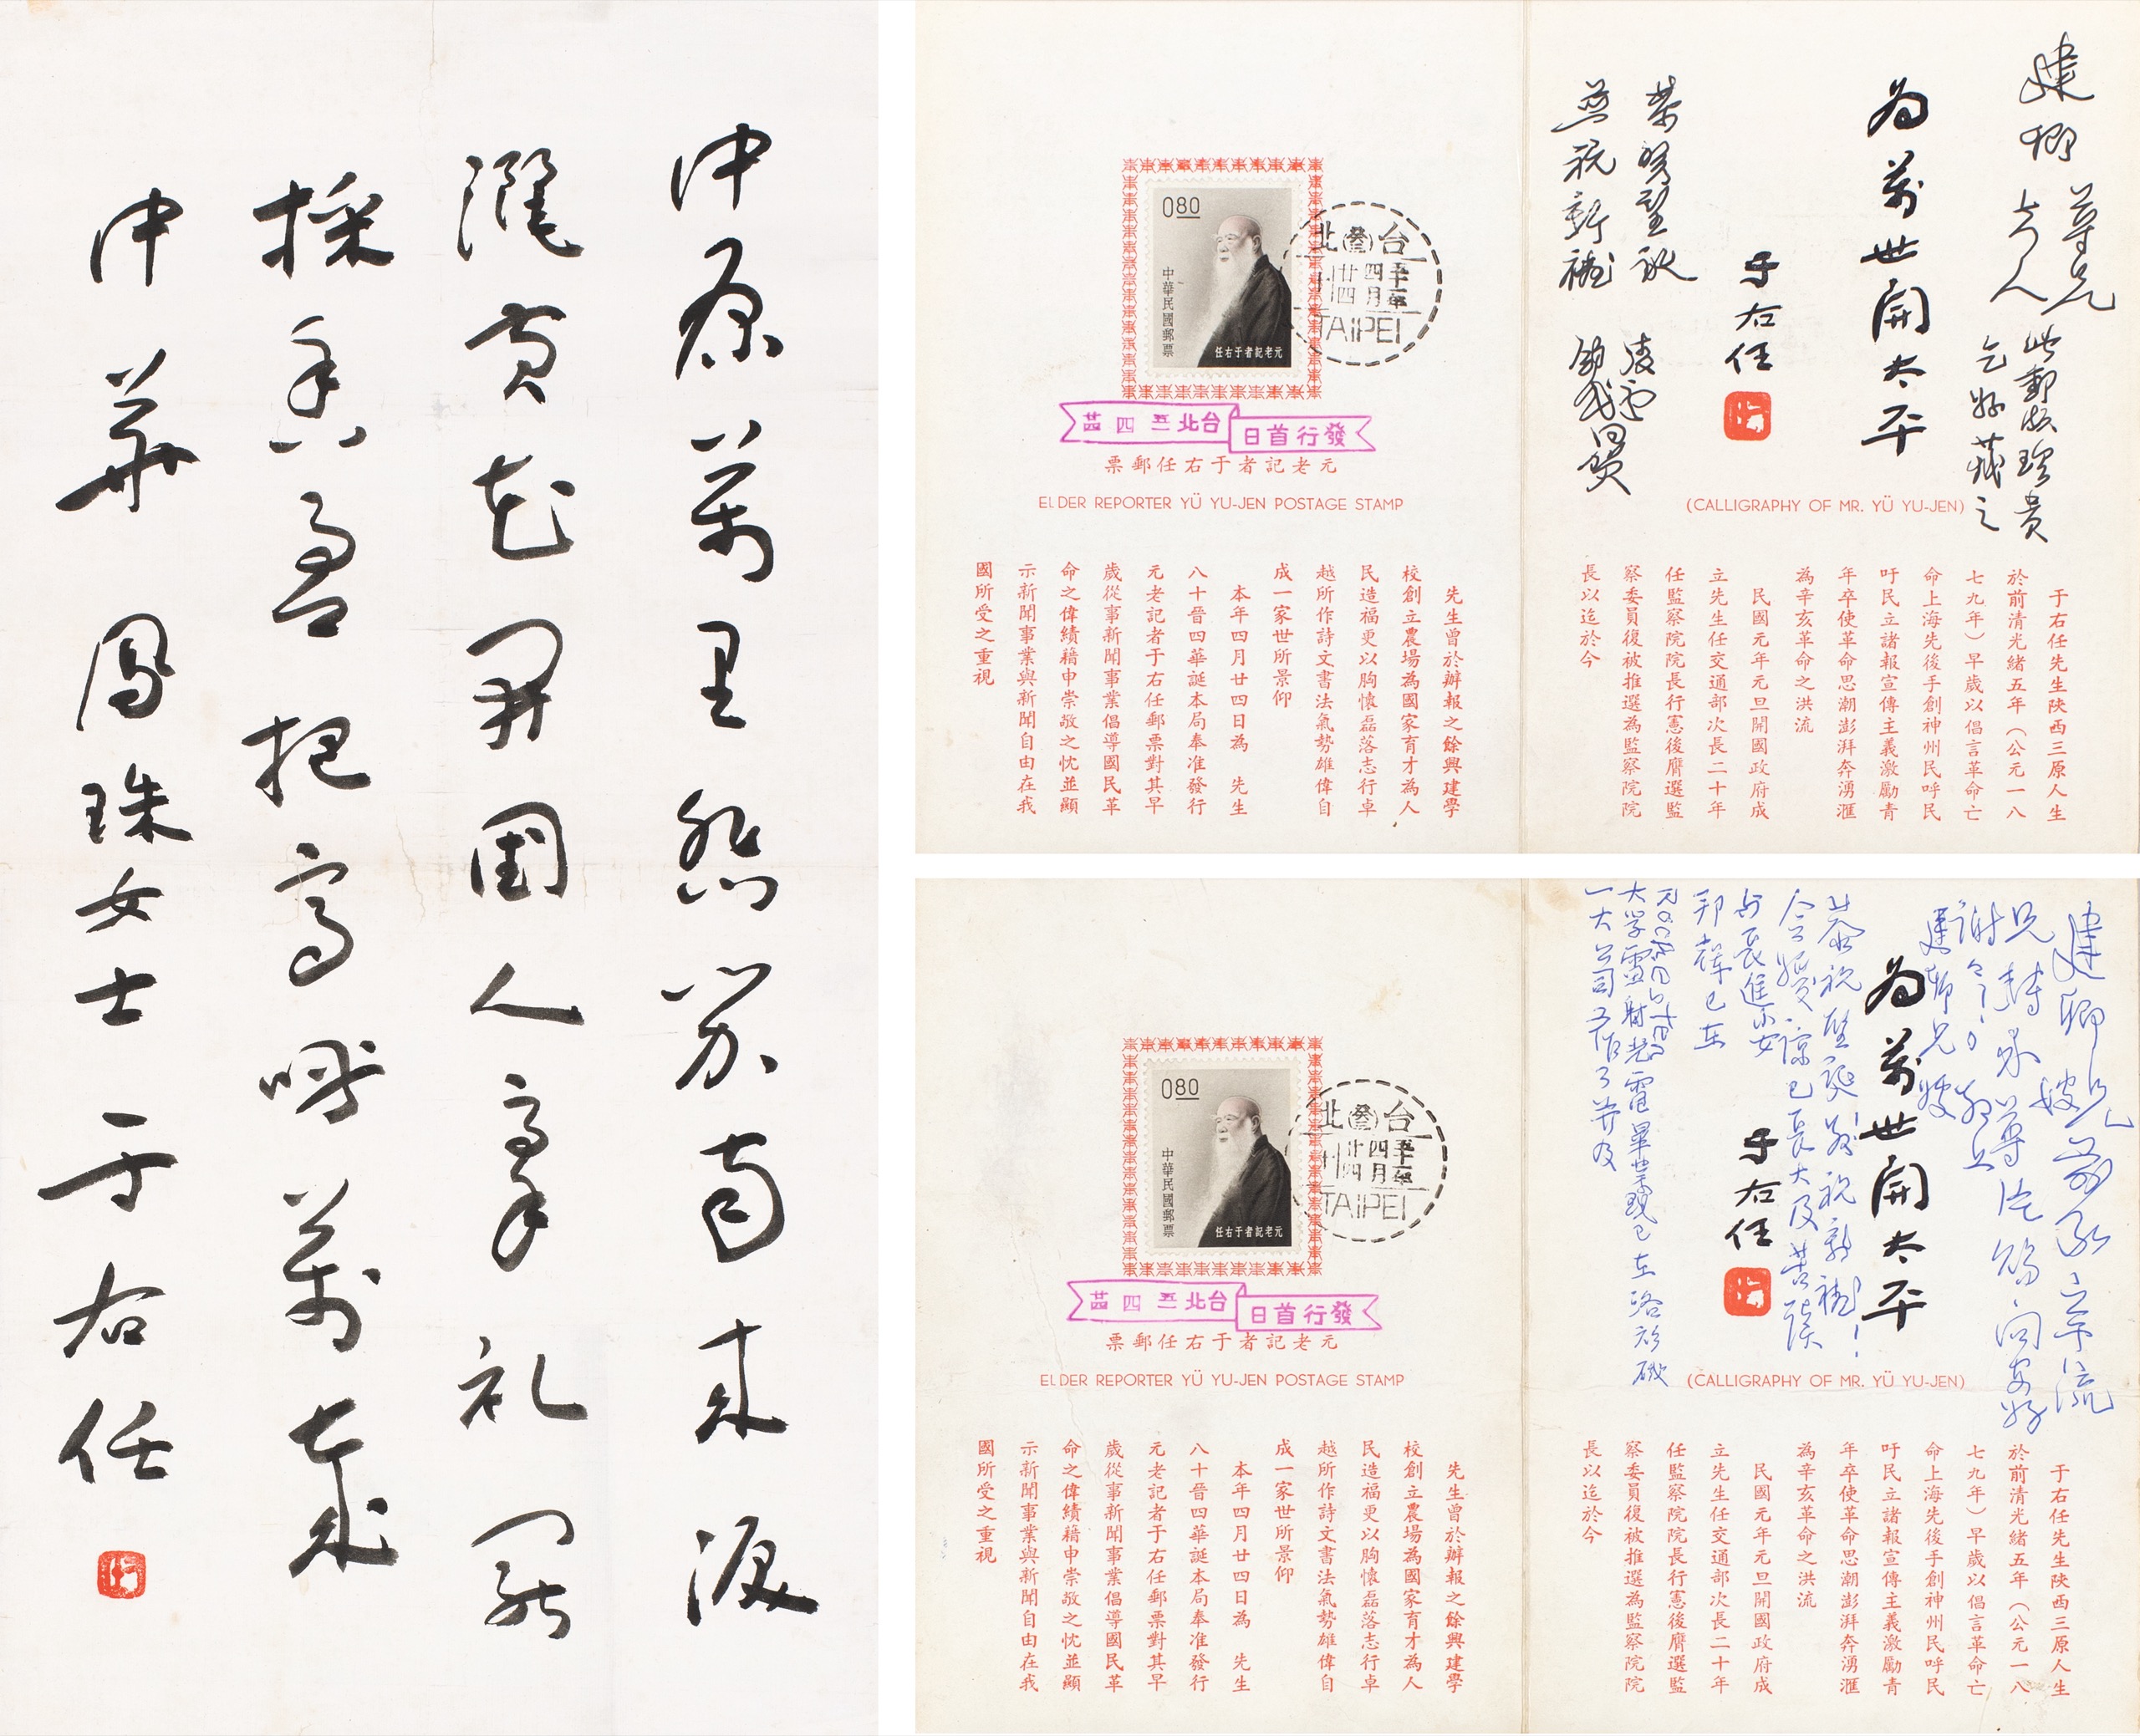 中原萬里悲笳南來淚
灑黃花開國人豪礼罷
採香盈把高呼萬歲
中華 鳳珠女士 于右任
建卿尊兄夫人
此郵極珍貴
乞妥藏之
為萬世開太平
于右任
恭賀聖誕
並祝新禧
同賀
(CALLIGRAPHY OF MR. YÜ YU-JEN)
于右任先生陝西三原人生
於前清光緒五年（公元一八
七九年）早歲以倡言革命亡
命上海先後手創神州民呼民
吁民立諸報宣傳主義激勵青
年卒使革命思潮澎湃奔湧滙
為辛亥革命之洪流
民國元年元旦開國政府成
立先生任交通部次長二十年
任監察院院長行憲後膺選監
察委員復被推選為監察院院
長以迄於今
080
中華民國郵票
元老記者于右任
台北
五十一年
四月
廿四
TAIPEI
發行首日
台北 五一 四 廿四
元老記者于右任郵票
ELDER REPORTER YÜ YU-JEN POSTAGE STAMP
先生曾於辦報之餘興建學
校創立農場為國家育才為人
民造福更以胸懷磊落志行卓
越所作詩文書法氣勢雄偉自
成一家世所景仰
本年四月廿四日為 先生
八十晉四華誕本局奉准發行
元老記者于右任郵票對其早
歲從事新聞事業倡導國民革
命之偉績藉申崇敬之忱並顯
示新聞事業與新聞自由在我
國所受之重視
建卿兄嫂前承
兄轉來尊片問安好
謝
建卿兄嫂
為萬世開太平
于右任
恭祝聖誕敬祝新禧!
令嬡諒已長大及
長進小女
邦 已在
大學雷射 電畢業現已在洛杉磯
一大公司工作了
(CALLIGRAPHY OF MR. YÜ YU-JEN)
于右任先生陝西三原人生
於前清光緒五年（公元一八
七九年）早歲以倡言革命亡
命上海先後手創神州民呼民
吁民立諸報宣傳主義激勵青
年卒使革命思潮澎湃奔湧滙
為辛亥革命之洪流
民國元年元旦開國政府成
立先生任交通部次長二十年
任監察院院長行憲後膺選監
察委員復被推選為監察院院
長以迄於今
080
中華民國郵票
元老記者于右任
台北
五十一年
四月
廿四
TAIPEI
發行首日
台北 五一 四 廿四
元老記者于右任郵票
ELDER REPORTER YÜ YU-JEN POSTAGE STAMP
先生曾於辦報之餘興建學
校創立農場為國家育才為人
民造福更以胸懷磊落志行卓
越所作詩文書法氣勢雄偉自
成一家世所景仰
本年四月廿四日為 先生
八十晉四華誕本局奉准發行
元老記者于右任郵票對其早
歲從事新聞事業倡導國民革
命之偉績藉申崇敬之忱並顯
示新聞事業與新聞自由在我
國所受之重視